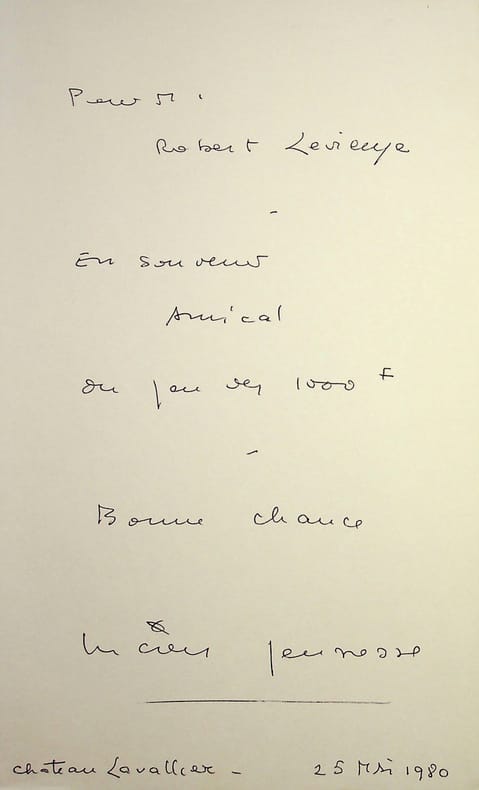 Pour M.
Robert Levieuge
-
En souvenir
Amical
du jeu des 1000 F
-
Bonne chance
Lucien Jeunesse
chateau Lavallier - 25 Mai 1980